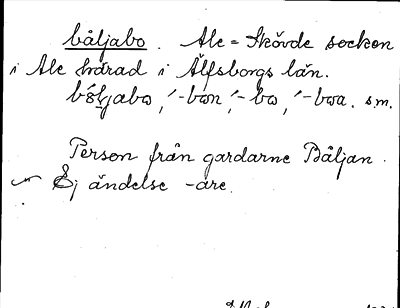 båljabo. Ale-Skövde socken
i Ale härad i Älfsborgs län.
bó̊ljabo, ´-bon, ´-bo, ´-boa. s.m.
Person från gardarne Båljan.
Ej ändelse -are.